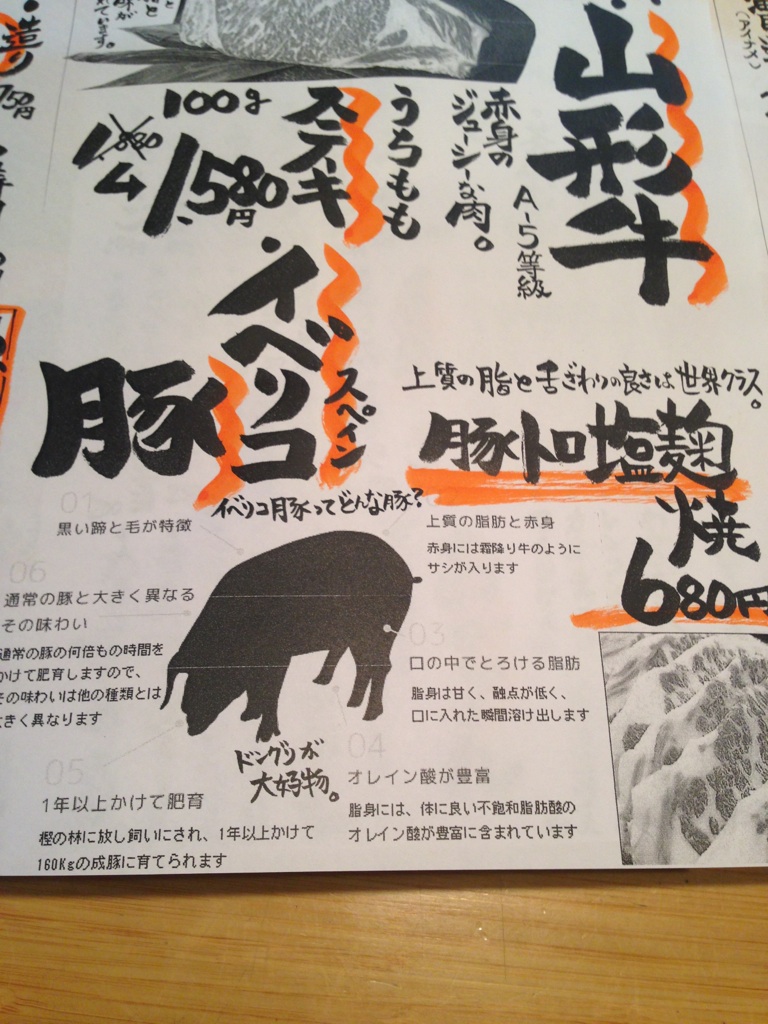 山形牛
A-5等級
赤身の
ジューシーな肉。
うちもも
ステーキ
100g
1,580円
イベリコ
豚
スペイン
上質の脂と舌ざわりの良さは世界クラス。
豚トロ塩麹
焼
680円
イベリコ豚ってどんな豚?
01
黒い蹄と毛が特徴
上質の脂肪と赤身
赤身には霜降り牛のように
サシが入ります
03
口の中でとろける脂肪
脂身は甘く、融点が低く、
口に入れた瞬間溶け出します
04
オレイン酸が豊富
脂身には、体に良い不飽和脂肪酸の
オレイン酸が豊富に含まれています
05
1年以上かけて肥育
樫の林に放し飼いにされ、1年以上かけて
160Kgの成豚に育てられます
06
通常の豚と大きく異なる
その味わい
通常の豚の何倍もの時間を
かけて肥育しますので、
その味わいは他の種類とは
大きく異なります
ドングリが
大好物。
造り
750円
(アイナメ)